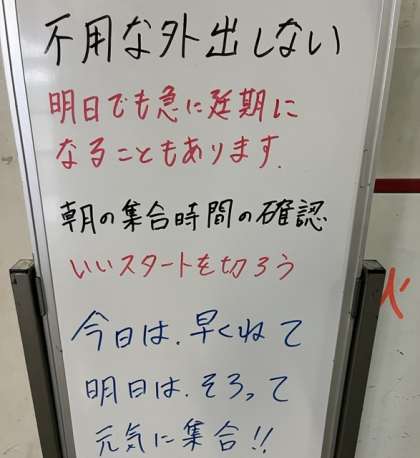 不用な外出しない
明日でも急に延期に
なることもあります.
朝の集合時間の確認
いいスタートを切ろう
今日は.早くねて
明日は.そろって
元気に集合!!